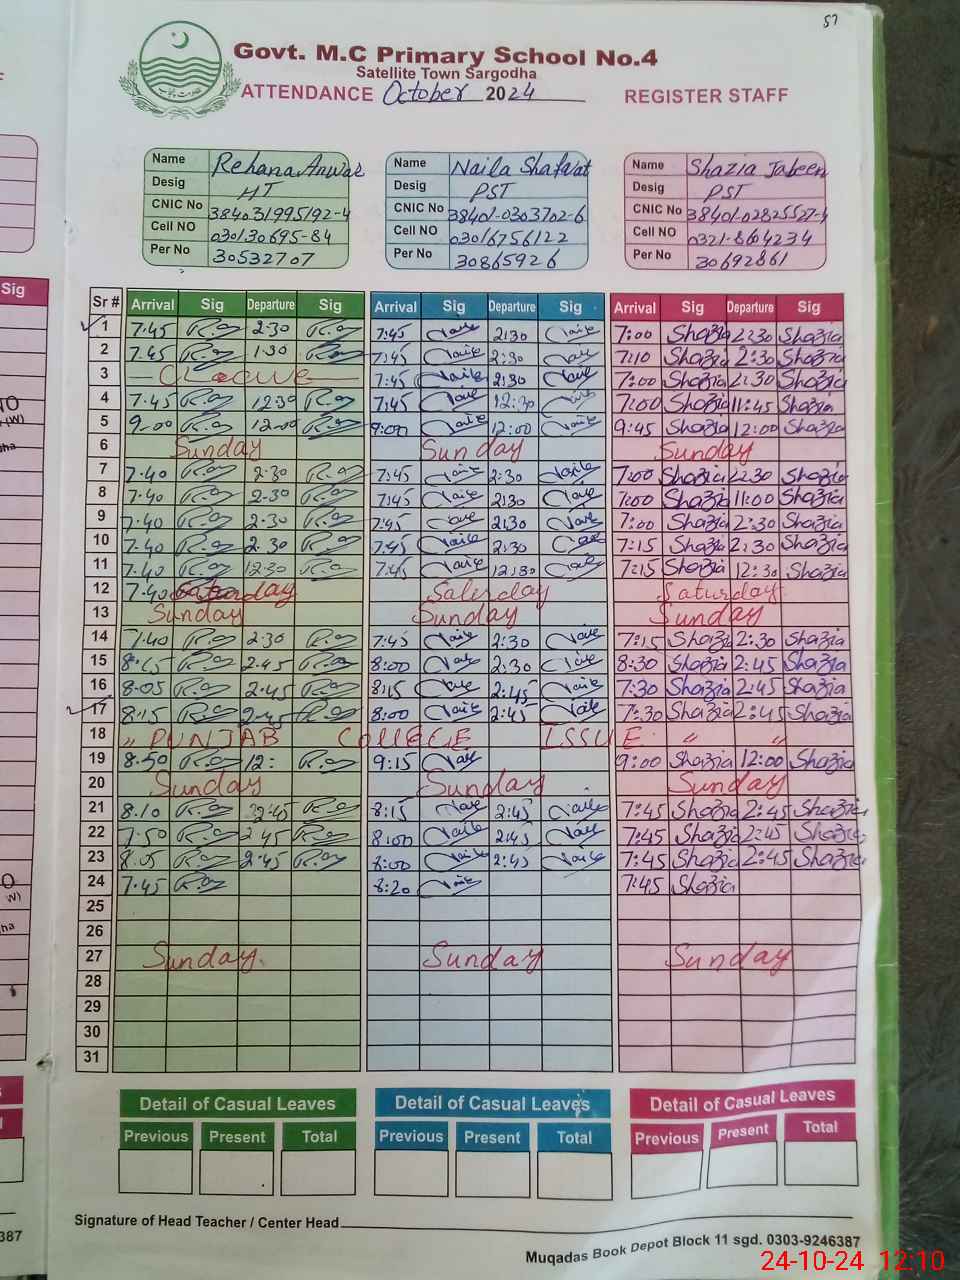 57
Govt. M.C Primary School No.4
Satellite Town Sargodha
ATTENDANCE October 2024 REGISTER STAFF
Name Rehana Anwar Name Naila Shafa'at Name Shazia Jabeen
Desig HT Desig PST Desig PST
CNIC No 384031995192-4 CNIC No 38401-0303702-6 CNIC No 38401-02825527-4
Cell NO 030130695-84 Cell NO 03016756122 Cell NO 0321-8604234
Per No 30532707 Per No 30865926 Per No 30692861
Sig
Sr # Arrival Sig Departure Sig Arrival Sig Departure Sig Arrival Sig Departure Sig
1 7.45 R.a 2.30 R.a 7:45 2:30 7:00 Shazia 2:30 Shazia
2 7.45 R.a 1.30 R.a 7:45 2:30 7:10 Shazia 2:30 Shazia
3 7:45 2:30 7:00 Shazia 2:30 Shazia
4 7.45 R.a 12.30 R.a 7:45 12:30 7:00 Shazia 11:45 Shazia
5 9.00 R.a 12.00 R.a 9:00 12:00 9:45 Shazia 12:00 Shazia
6 Sunday Sunday Sunday
7 7.40 R.a 2.30 R.a 7:45 2:30 7:00 Shazia 2:30 Shazia
8 7.40 R.a 2.30 R.a 7:45 2:30 7:00 Shazia 11:00 Shazia
9 7.40 R.a 2.30 R.a 7:45 2:30 7:00 Shazia 2:30 Shazia
10 7.40 R.a 2.30 R.a 7:45 2:30 7:15 Shazia 2:30 Shazia
11 7.40 R.a 12.30 R.a 7:45 12:30 7:15 Shazia 12:30 Shazia
12 7.40 Saturday Saturday Saturday
13 Sunday Sunday Sunday
14 7.40 R.a 2.30 R.a 7:45 2:30 7:15 Shazia 2:30 Shazia
15 R.a 2.45 R.a 8:00 2:30 8:30 Shazia 2:45 Shazia
16 8.05 R.a 2.45 R.a 8:15 2:45 7:30 Shazia 2:45 Shazia
17 8.15 R.a 2.45 R.a 8:00 2:45 7:30 Shazia 2:45 Shazia
18 " PUNJAB COLLEGE ISSUE " "
19 8.50 R.a 12: R.a 9:15 9:00 Shazia 12:00 Shazia
20 Sunday Sunday Sunday
21 8.10 R.a 2.45 R.a 8:15 2:45 7:45 Shazia 2:45 Shazia
22 7.50 R.a 2.45 R.a 8:00 2:45 7:45 Shazia 2:45 Shazia
23 8.05 R.a 2.45 R.a 8:00 2:45 7:45 Shazia 2:45 Shazia
24 7.45 R.a 8:20 7:45 Shazia
25
26
27 Sunday Sunday Sunday
28
29
30
31
Detail of Casual Leaves Detail of Casual Leaves Detail of Casual Leaves
Previous Present Total Previous Present Total Previous Present Total
Signature of Head Teacher / Center Head
387
Muqadas Book Depot Block 11 sgd. 0303-9246387
24-10-24 12:10